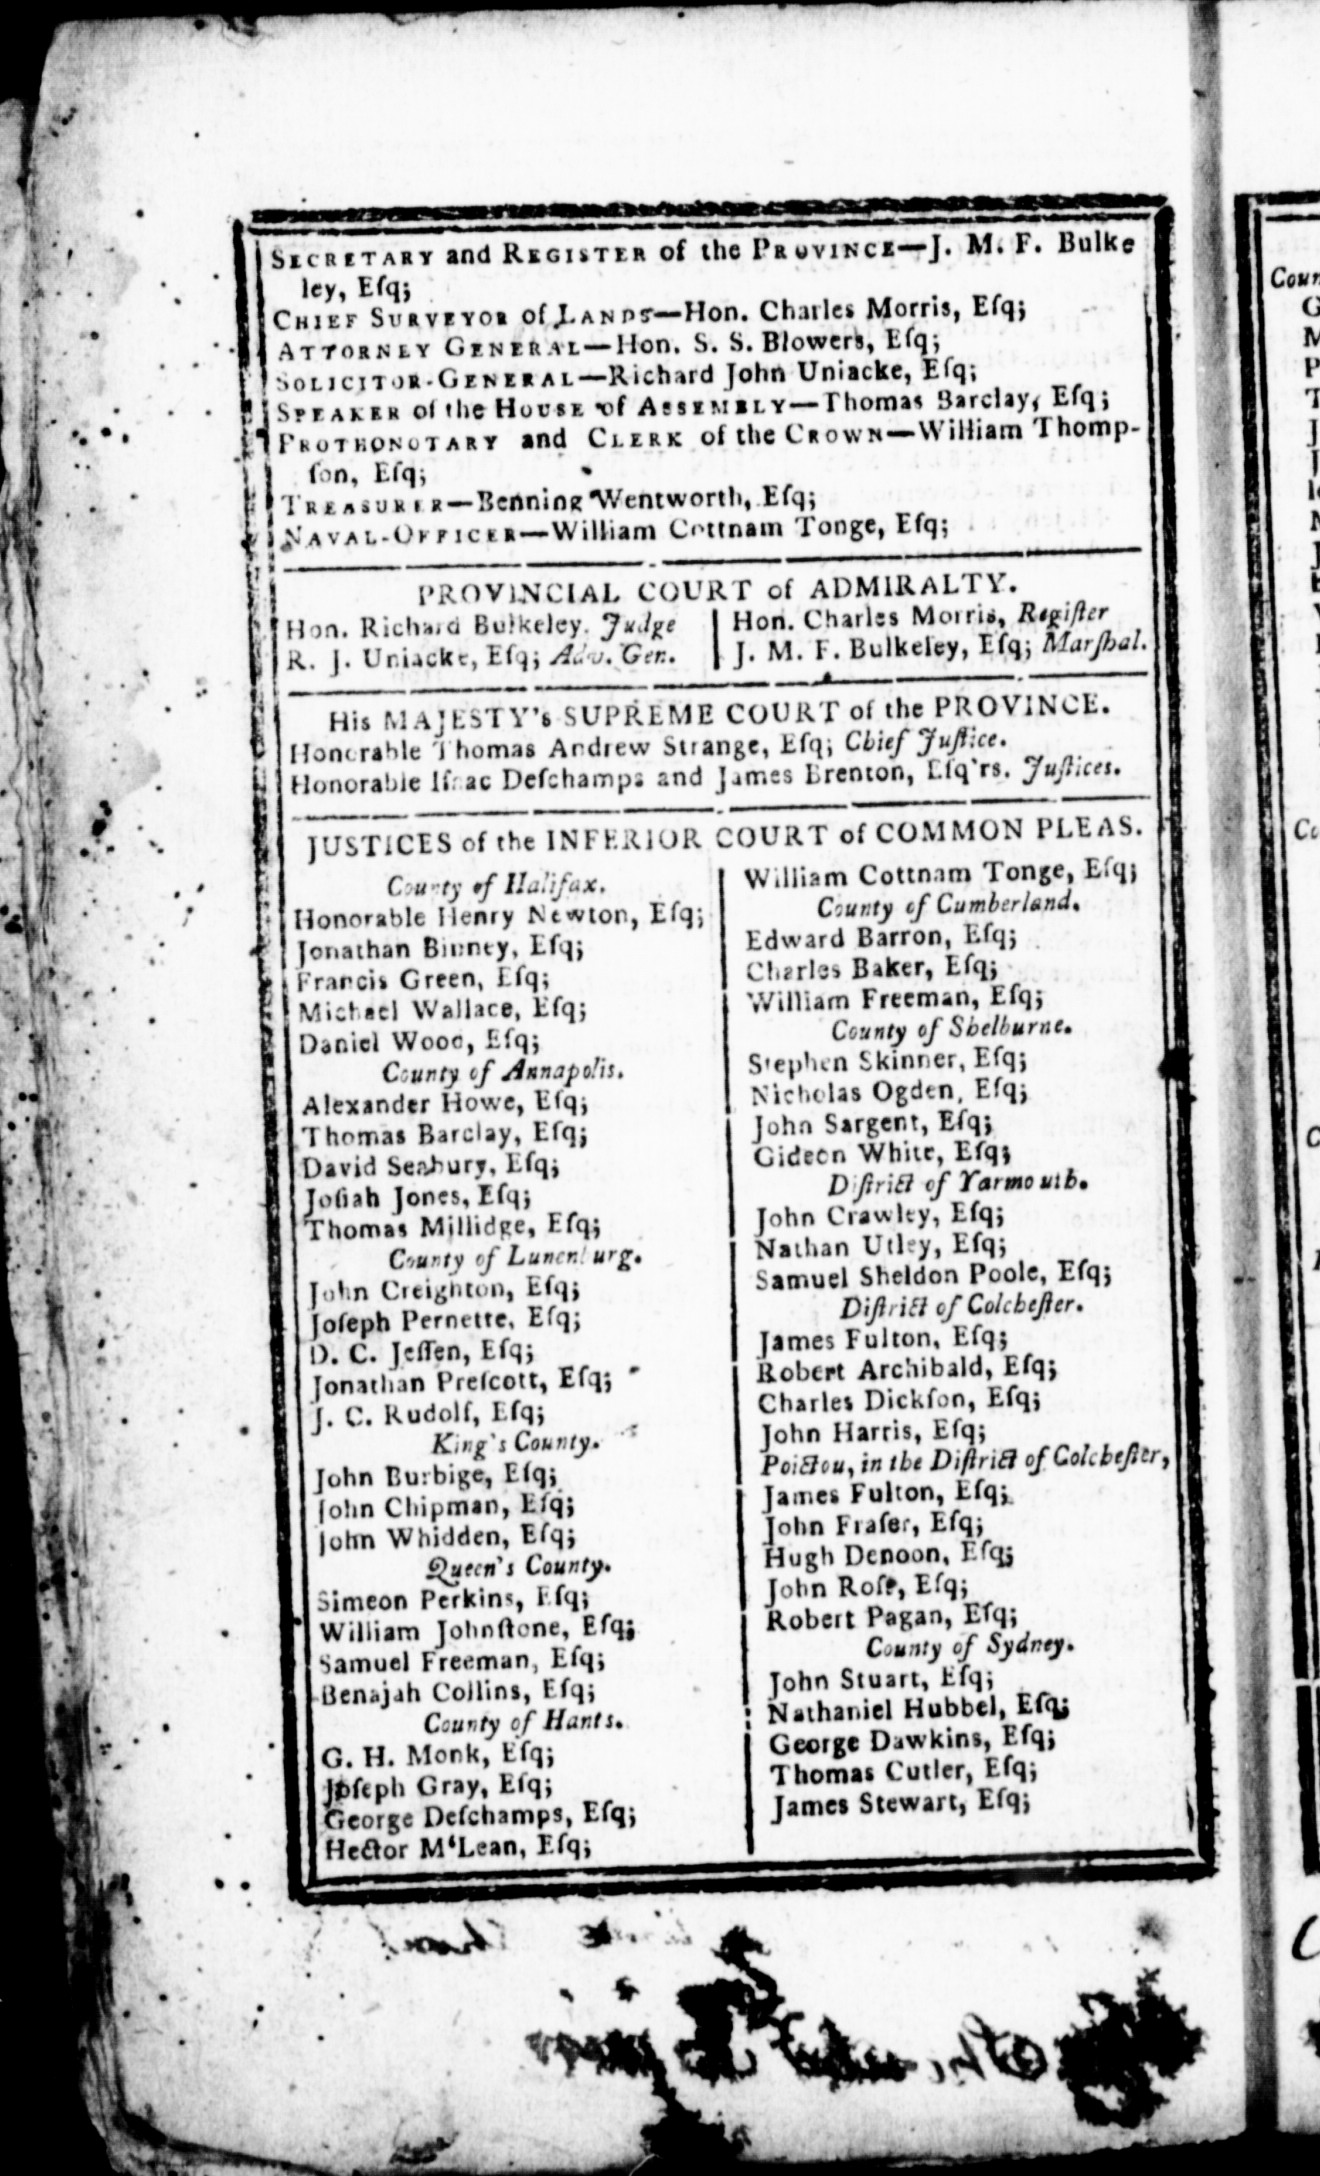 SECRETARY and REGISTER of the PROVINCE—J. M. F. Bulke
ley, Eſq;
CHIEF SURVEYOR of LANDS—Hon. Charles Morris, Eſq;
ATTORNEY GENERAL—Hon. S. S. Blowers, Eſq;
SOLICITOR-GENERAL—Richard John Uniacke, Eſq;
SPEAKER of the HOUSE of ASSEMBLY—Thomas Barclay, Eſq;
PROTHONOTARY and CLERK of the CROWN—William Thomp-
ſon, Eſq;
TREASURER—Benning Wentworth, Eſq;
NAVAL-OFFICER—William Cottnam Tonge, Eſq;
PROVINCIAL COURT of ADMIRALTY.
Hon. Richard Bulkeley, Judge
R. J. Uniacke, Eſq; Adv. Gen.
Hon. Charles Morris, Regiſter
J. M. F. Bulkeley, Eſq; Marſhal.
His MAJESTY's SUPREME COURT of the PROVINCE.
Honorable Thomas Andrew Strange, Eſq; Chief Juſtice.
Honorable Iſaac Deſchamps and James Brenton, Eſq'rs. Juſtices.
JUSTICES of the INFERIOR COURT of COMMON PLEAS.
County of Halifax.
Honorable Henry Newton, Eſq;
Jonathan Binney, Eſq;
Francis Green, Eſq;
Michael Wallace, Eſq;
Daniel Wood, Eſq;
County of Annapolis.
Alexander Howe, Eſq;
Thomas Barclay, Eſq;
David Seabury, Eſq;
Joſiah Jones, Eſq;
Thomas Millidge, Eſq;
County of Lunenburg.
John Creighton, Eſq;
Joſeph Pernette, Eſq;
D. C. Jeſſen, Eſq;
Jonathan Preſcott, Eſq;
J. C. Rudolf, Eſq;
King's County.
John Burbige, Eſq;
John Chipman, Eſq;
John Whidden, Eſq;
Queen's County.
Simeon Perkins, Eſq;
William Johnſtone, Eſq;
Samuel Freeman, Eſq;
Benajah Collins, Eſq;
County of Hants.
G. H. Monk, Eſq;
Joſeph Gray, Eſq;
George Deſchamps, Eſq;
Hector M‘Lean, Eſq;
William Cottnam Tonge, Eſq;
County of Cumberland.
Edward Barron, Eſq;
Charles Baker, Eſq;
William Freeman, Eſq;
County of Shelburne.
Stephen Skinner, Eſq;
Nicholas Ogden, Eſq;
John Sargent, Eſq;
Gideon White, Eſq;
Diſtrict of Yarmouth.
John Crawley, Eſq;
Nathan Utley, Eſq;
Samuel Sheldon Poole, Eſq;
Diſtrict of Colcheſter.
James Fulton, Eſq;
Robert Archibald, Eſq;
Charles Dickſon, Eſq;
John Harris, Eſq;
Poictou, in the Diſtrict of Colcheſter,
James Fulton, Eſq;
John Fraſer, Eſq;
Hugh Denoon, Eſq;
John Roſs, Eſq;
Robert Pagan, Eſq;
County of Sydney.
John Stuart, Eſq;
Nathaniel Hubbel, Eſq;
George Dawkins, Eſq;
Thomas Cutler, Eſq;
James Stewart, Eſq;